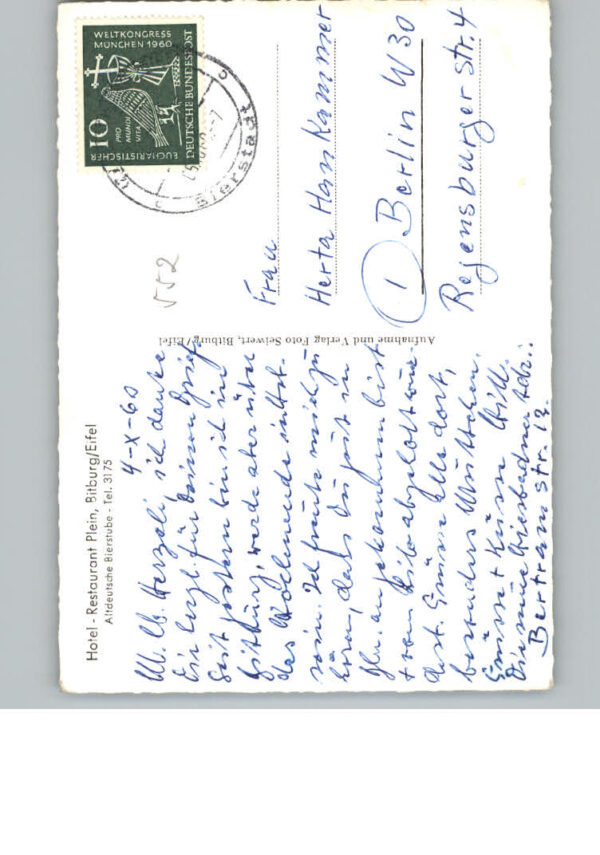 Hotel - Restaurant Plein, Bitburg/Eifel
Altdeutsche Bierstube - Tel. 3175
4-X-60
M. lb. Herzeli, ich danke
Dir herzl. für Deinen Brief.
Seit gestern bin ich in
Bitburg, werde aber über
das Wochenende in
sein. Ich freute mich zu
hören, daß Du gut in
Bln. angekommen bist
+ von abgeholt wur-
dest. Grüsse alle dort,
besonders Muttchen.
Gruss + Küsse Willi.
Die neue Wiesbadner Adr.:
Bertramstr. 13.
Aufnahme und Verlag Foto Seiwert, Bitburg/Eifel
WELTKONGRESS
MÜNCHEN 1960
EUCHARISTISCHER
DEUTSCHE BUNDESPOST
PRO
MUNDI
VITA
10
Bierstadt
552
Frau
Herta Hanskammer
1 Berlin W 30
Regensburger Str. 4